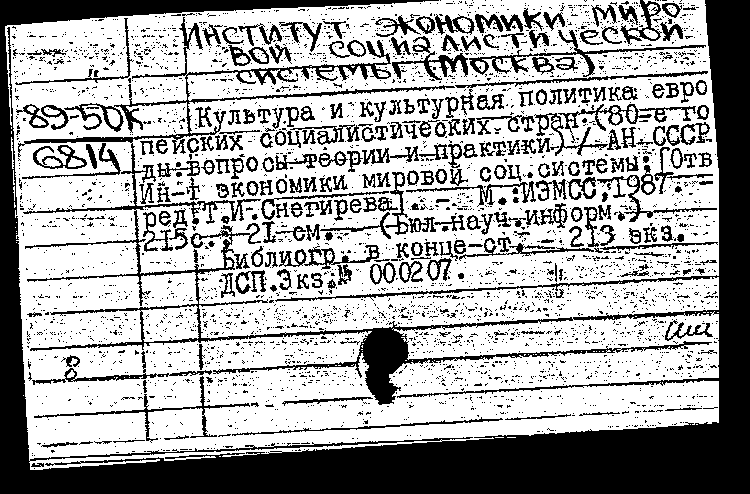 Институт экономики миро
вой социалистической
системы (Москва).
89-50К
6814
Культура и культурная политика евро
пейских социалистических стран:(80-е го
ды:вопросы теории и практики) / АН СССР
Ин-т экономики мировой соц.системы;[Отв
ред.Т.И.Снегирева]. - М.:ИЭМСС,1987. -
215с.; 21 см. - (Бюл.науч.информ.).
Библиогр. в конце ст. - 213 экз.
ДСП.Экз.№ 000207.